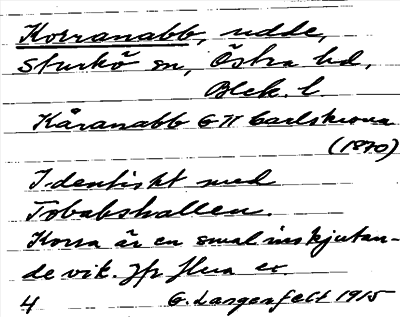 Korranabb, udde,
Sturkö sn, Östra hd,
Blek. l.
Kåranabb G K Carlskrona
(1870)
Identiskt med
Tobabshallen.
Korra är en smal inskjutan-
de vik. Jfr
4 G. Langenfelt 1915